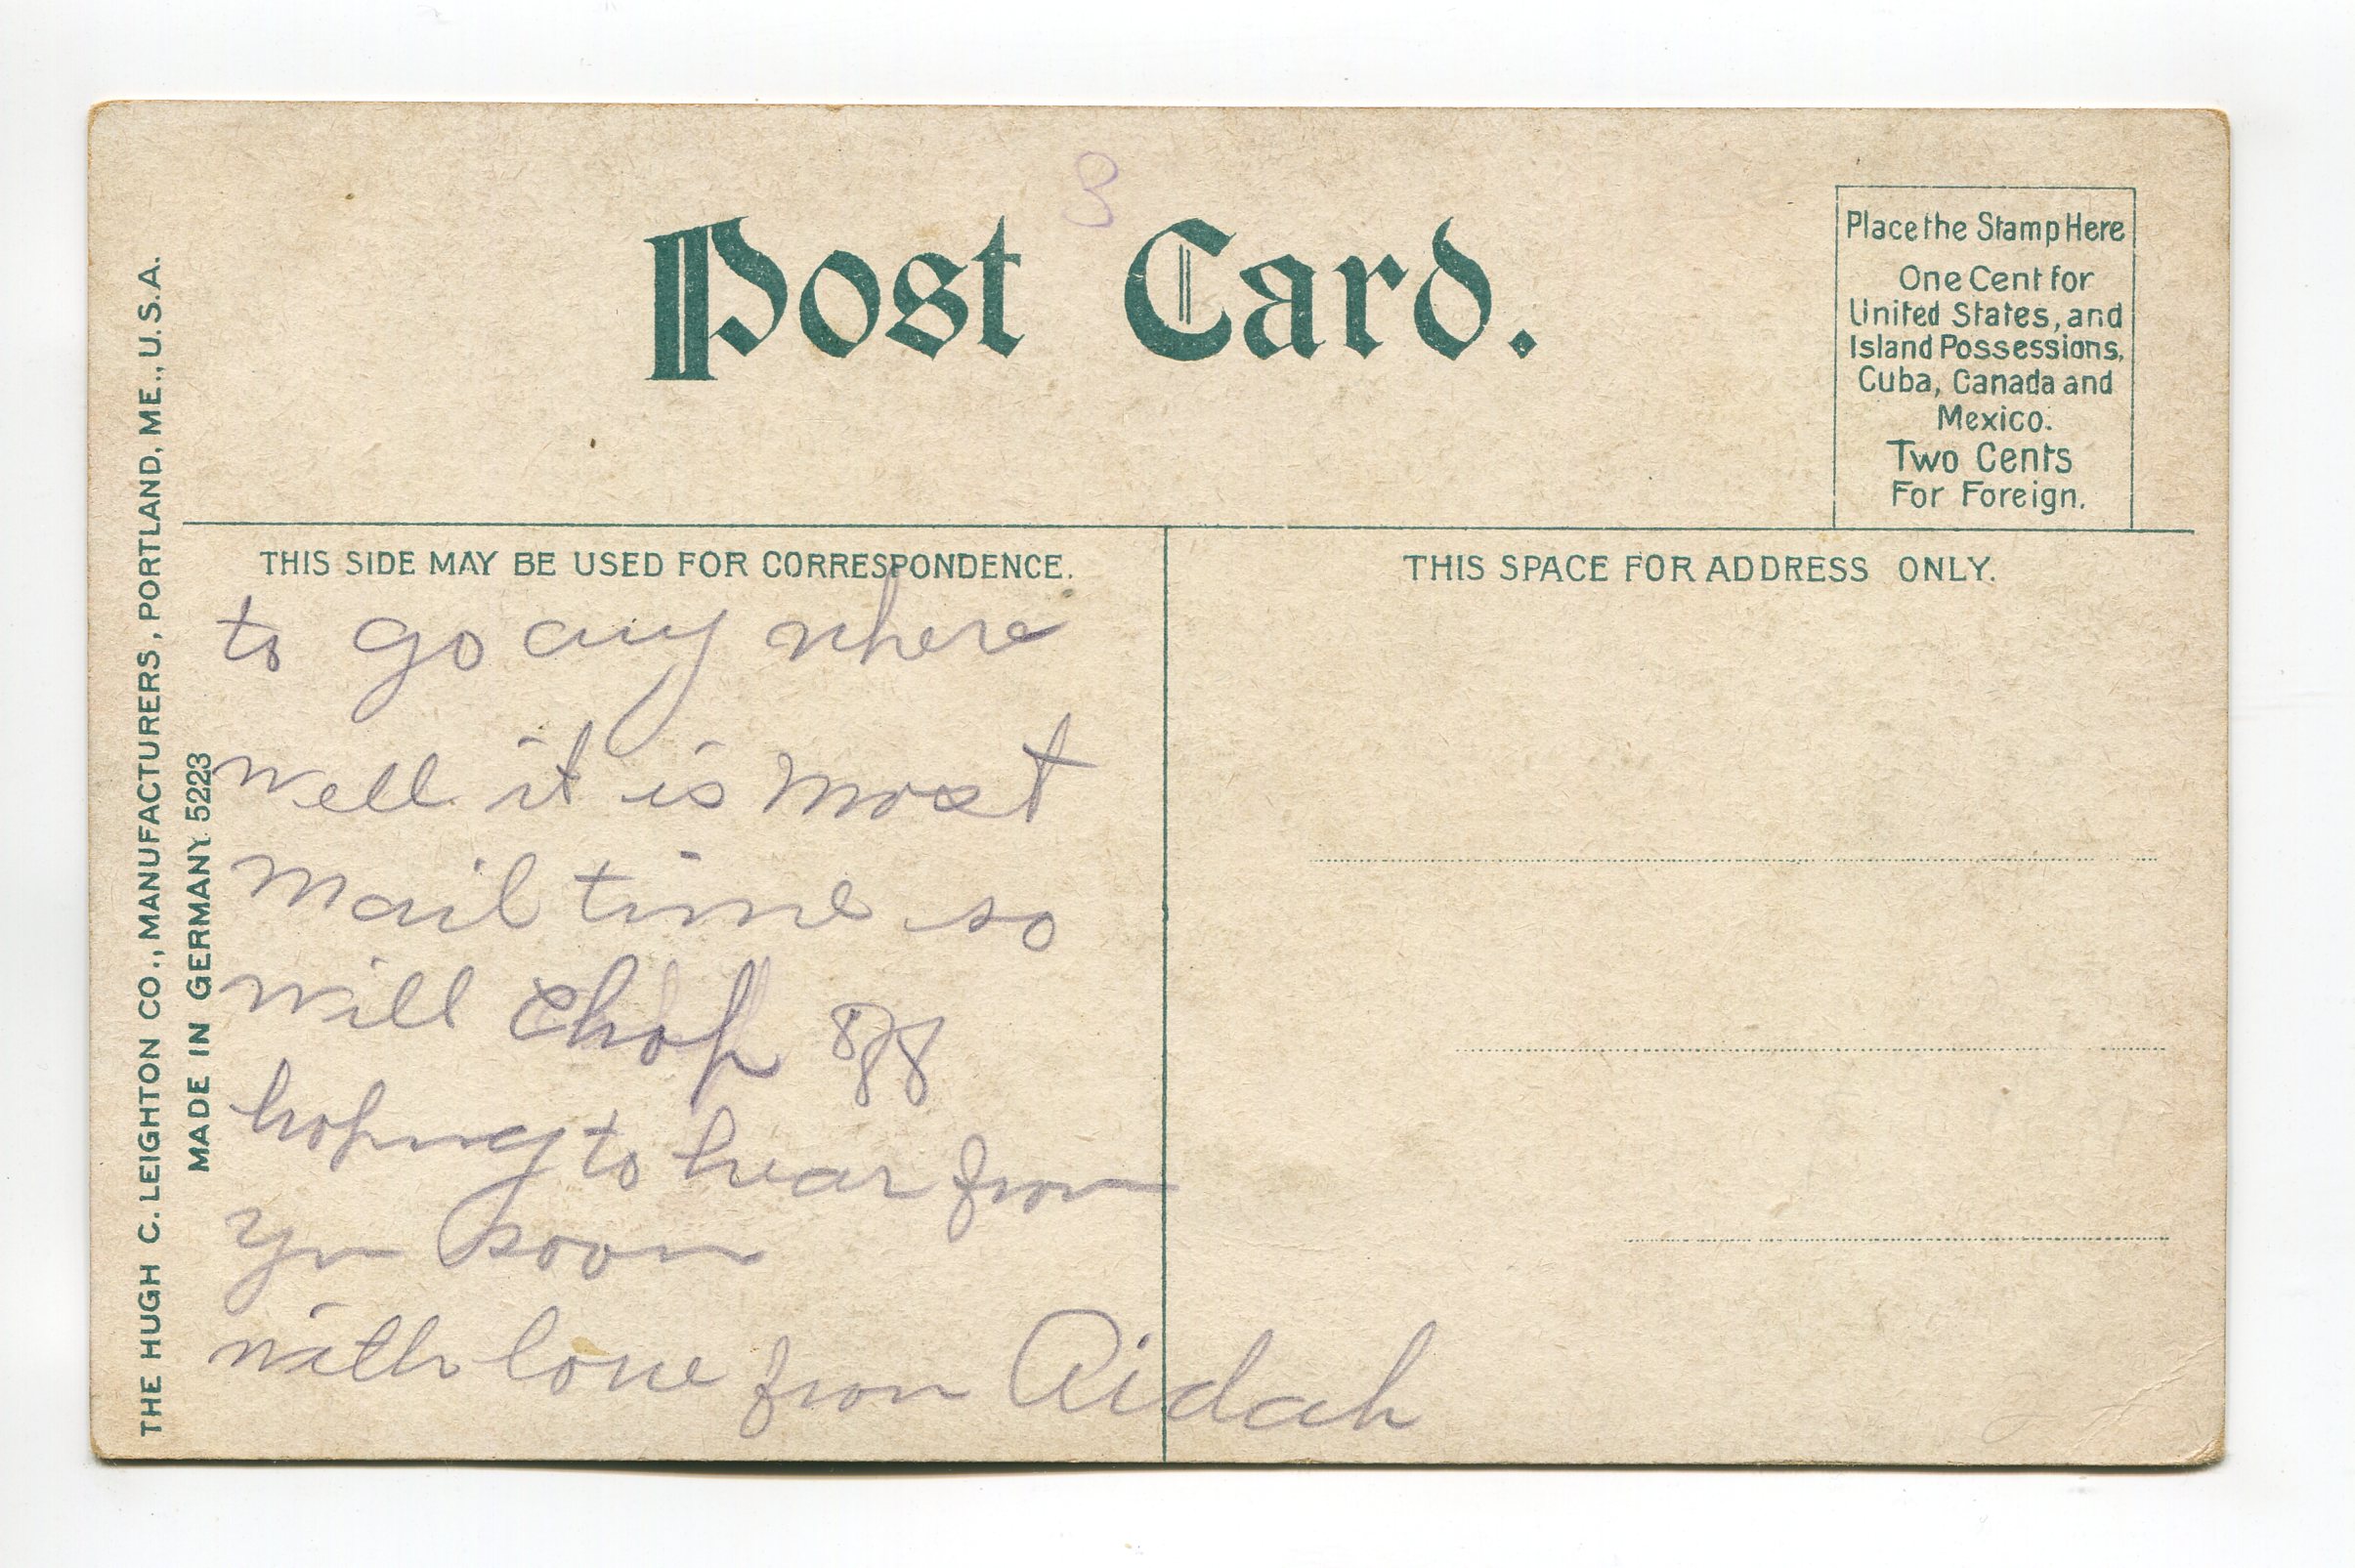 3
Post Card.
Place the Stamp Here
One Cent for
United States, and
Island Possessions,
Cuba, Canada and
Mexico.
Two Cents
For Foreign.
THE HUGH C. LEIGHTON CO., MANUFACTURERS, PORTLAND, ME., U.S.A.
MADE IN GERMANY. 5223
THIS SIDE MAY BE USED FOR CORRESPONDENCE.
to go any where
well it is most
mail time so
will chop
hoping to hear from
you soon
with love from Aidah
THIS SPACE FOR ADDRESS ONLY.